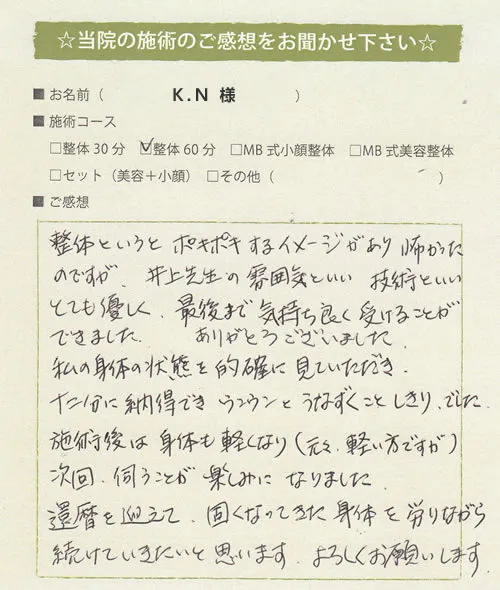 ☆当院の施術のご感想をお聞かせ下さい☆
■お名前（ K.N 様 ）
■施術コース
□整体30分 ☑整体60分 □MB式小顔整体 □MB式美容整体
□セット（美容＋小顔） □その他（ ）
■ご感想
整体というと ポキポキするイメージがあり 怖かった
のですが、井上先生の雰囲気といい 技術といい
とても優しく、最後まで気持ち良く受けることが
できました。 ありがとうございました。
私の身体の状態を的確に見ていただき、
十二分に納得でき ウンウンとうなずくことしきり、でした。
施術後は身体も軽くなり（元々、軽い方ですが）
次回、伺うことが楽しみになりました。
還暦を迎えて、固くなってきた身体を労りながら
続けていきたいと思います。よろしくお願いします。